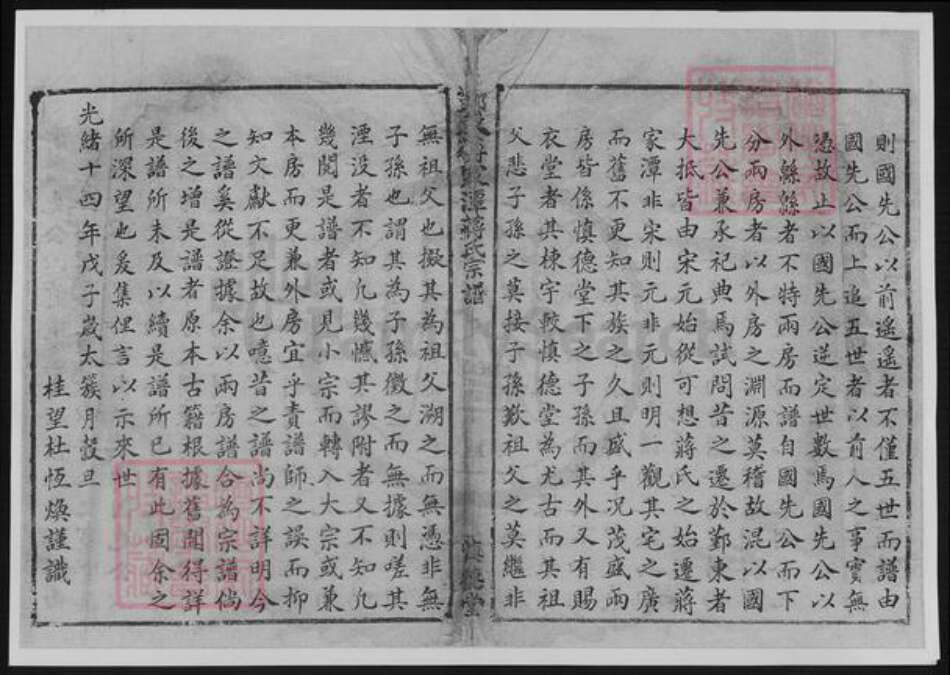 則國先公以前遙遙者不僅五世而譜由
國先公而上追五世者以前人之事實無
憑故止以國先公逆定世數焉國先公以
外緜緜者不特兩房而譜自國先公而下
分兩房者以外房之淵源莫稽故混以國
先公兼承祀典焉試問昔之遷於鄞東者
大抵皆由宋元始從可想蔣氏之始遷蔣
家潭非宋則元非元則明一觀其宅之廣
而舊不更知其族之久且盛乎況茂盛兩
房皆係慎德堂下之子孫而其外又有賜
衣堂者其棟宇較慎德堂為尤古而其祖
父悲子孫之莫接子孫歎祖父之莫繼非
家潭蔣氏宗譜
德堂
無祖父也擬其為祖父溯之而無憑非無
子孫也謂其為子孫徵之而無據則嗟其
湮沒者不知凡幾憾其謬附者又不知凡
幾閱是譜者或見小宗而轉入大宗或兼
本房而更兼外房宜乎責譜師之誤而抑
知文獻不足故也噫昔之譜尚不詳明今
之譜奚從證據余以兩房譜合為宗譜倘
後之增是譜者原本古籍根據舊聞得詳
是譜所未及以續是譜所已有此固余之
所深望也爰集俚言以示來世
光緒十四年戊子歲太簇月穀旦
桂望杜恆煥謹識